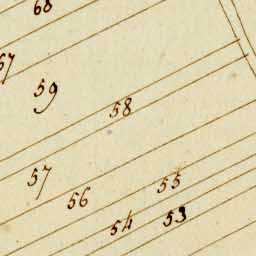 68
67
59
58
57
56
55
54
53